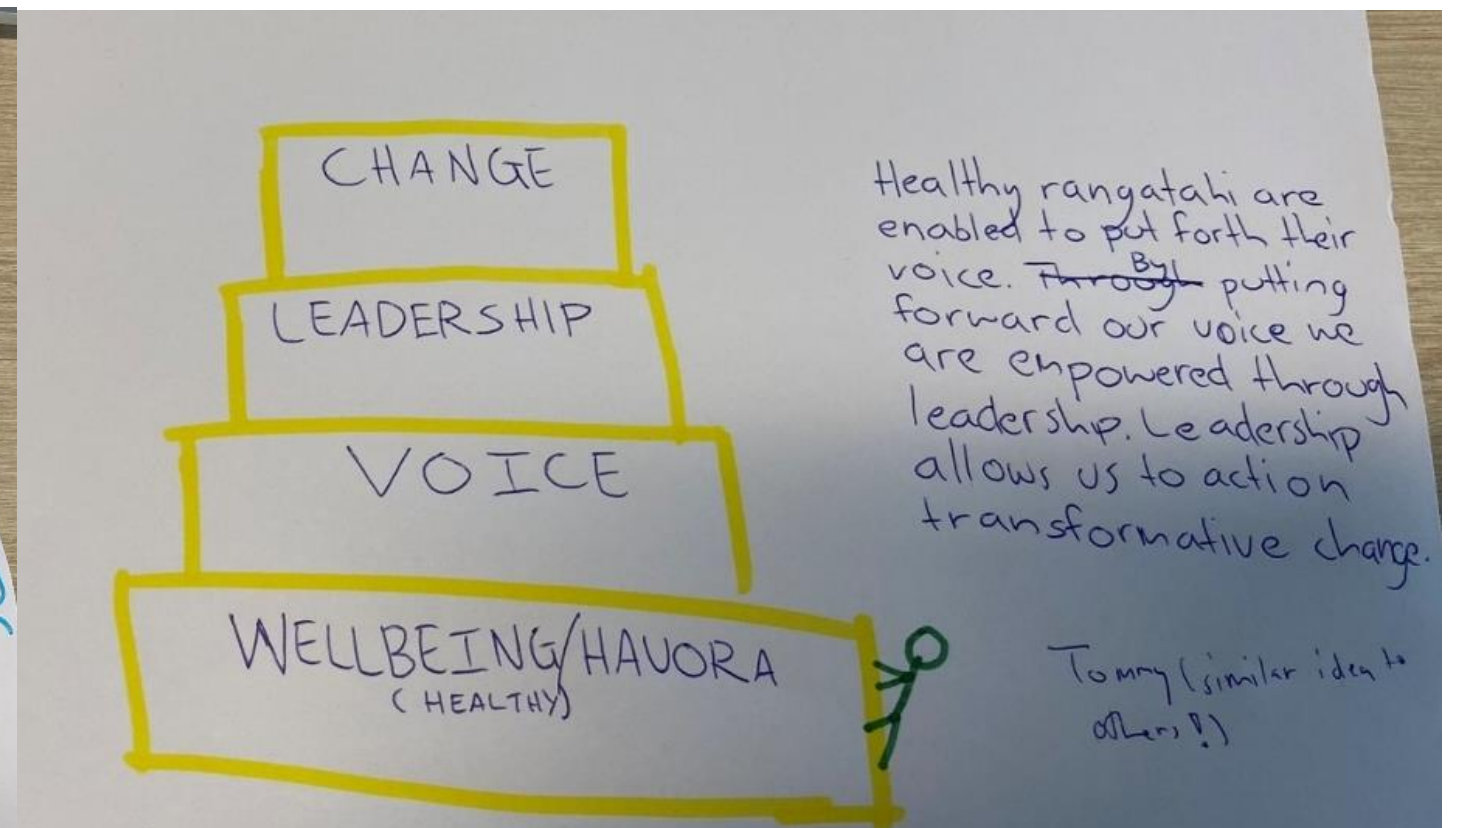 CHANGE
LEADERSHIP
VOICE
WELLBEING/HAUORA
(HEALTHY)
Healthy rangatahi are
enabled to put forth their
voice. Through By putting
forward our voice we
are empowered through
leadership. Leadership
allows us to action
transformative change.
Tommy (similar idea to
others!)